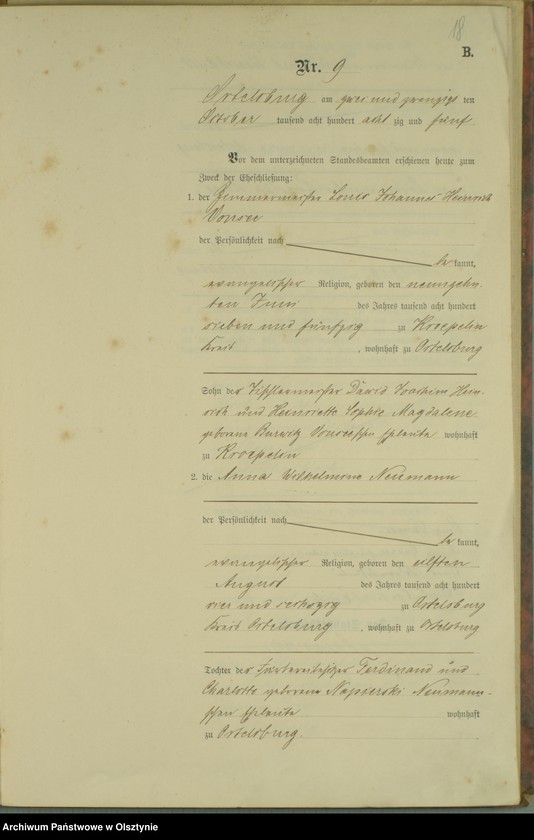 18
B.
Nr. 9
Ortelsburg am zwei und zwanzigs ten
October tausend acht hundert acht zig und fünf
Vor dem unterzeichneten Standesbeamten erschienen heute zum
Zweck der Eheschließung:
1. der Zimmermeister Louis Johannes Heinrich
der Persönlichkeit nach
be kannt,
evangelischer Religion, geboren den neunzehn-
ten Juni des Jahres tausend acht hundert
sieben und fünfzig zu Kroepelin
Kreis , wohnhaft zu Ortelsburg
Sohn der Tischlermeister David Joachim Hein-
rich und Henriette Sophie Magdalene
geborene schen Eheleute wohnhaft
zu Kroepelin
2. die Anna Wilhelmine Neumann
der Persönlichkeit nach
be kannt,
evangelischer Religion, geboren den eilften
August des Jahres tausend acht hundert
vier und sechszig zu Ortelsburg
Kreis Ortelsburg , wohnhaft zu Ortelsburg
Tochter der Färbereibesitzer Ferdinand und
Charlotte geborene Napierski Neumann-
schen Eheleute wohnhaft
zu Ortelsburg.
Archiwum Państwowe w Olsztynie